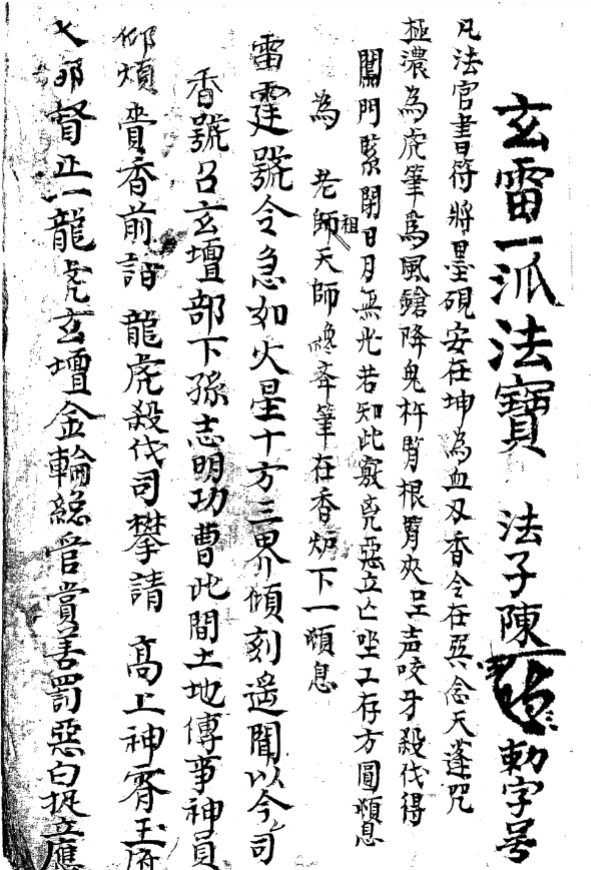 玄雷一派法寶 法子陳 勅字号
凡法官書符將墨硯安在坤為血刄香令在巽念天蓬咒
極濃為虎筆爲風鎗降鬼杵腎根臂夾声咬牙殺伐得
閗門緊閉日月無光若知此竅凶惡立亡坐工存方圓順息
為 老師祖天師 筆在香炉下一順息
雷霆號令急如火星十方三界傾刻遥聞以今司
香號召玄壇部下孫志明功曹此間土地傳事神員
仰煩賫香前詣 龍虎殺伐司攀請 高上神霄玉府
大邪督正一龍虎玄壇金輪總管賞善罰惡白捉立應